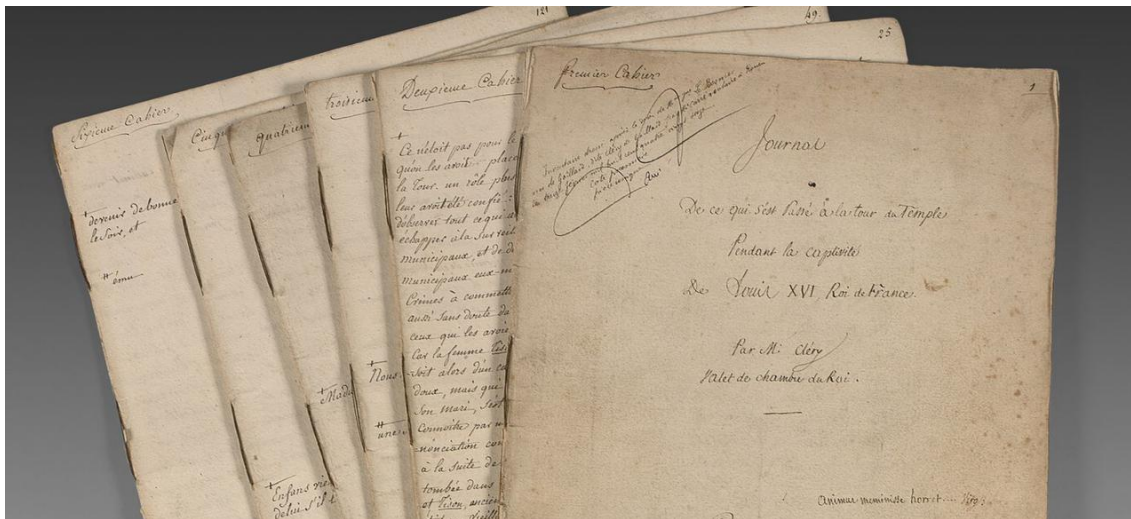 121
49.
25
Sixieme Cahier
devenir de bonne
le soir, et
ému
Cinq
quatriem
Enfans
troisieme
Nous
une
Deuxieme Cahier
Ce n'étoit pas pour le
qu'on les avoit placé
la Tour. un rôle plus
leur avoit été confié :
d'observer tout ce qui
échapper à la surveil
municipaux, et de d
municipaux eux-m
Crimes à commettre
aussi sans doute da
ceux qui les avoie
Car la femme Tiso
doux, mais qui
Son mari, s'est
Connoitre par u
nonciation con
à la suite de
tombée dans
et Tison, ancien
Premier Cahier
1
Journal
De ce qui s'est Passé à la tour du Temple
Pendant la captivité
De Louis XVI Roi de France.
Par Mr. Cléry
Valet de chambre du Roi.
animus meminisse horret.... Virg: